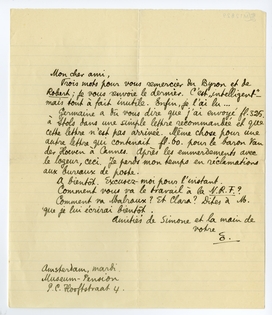 Mon cher ami,
Trois mots pour vous remercier du Byron et de
Robert; je vous envoie le dernier. C'est intelligent
mais tout à fait inutile. Enfin, je l'ai lu...
Germaine a dû vous dire que j'ai envoyé fl. 325
à Stols dans une simple lettre recommandée et que
cette lettre n'est pas arrivée. Même chose pour une
autre lettre qui contenait fl. 60. pour le baron Van
der Hoeven à Cannes. Après les emmerdements avec
le logeur, ceci. Je perds mon temps en réclamations
aux bureaux de poste.
A bientôt. Excusez-moi pour l'instant.
Comment vous va le travail à la N.R.F.?
Comment va Malraux? Et Clara? Dites à M.
que je lui écrirai bientôt.
Amitiés de Simone et la main de
votre
E.
Amsterdam, mardi
Museum-Pension
P.C. Hooftstraat 4.